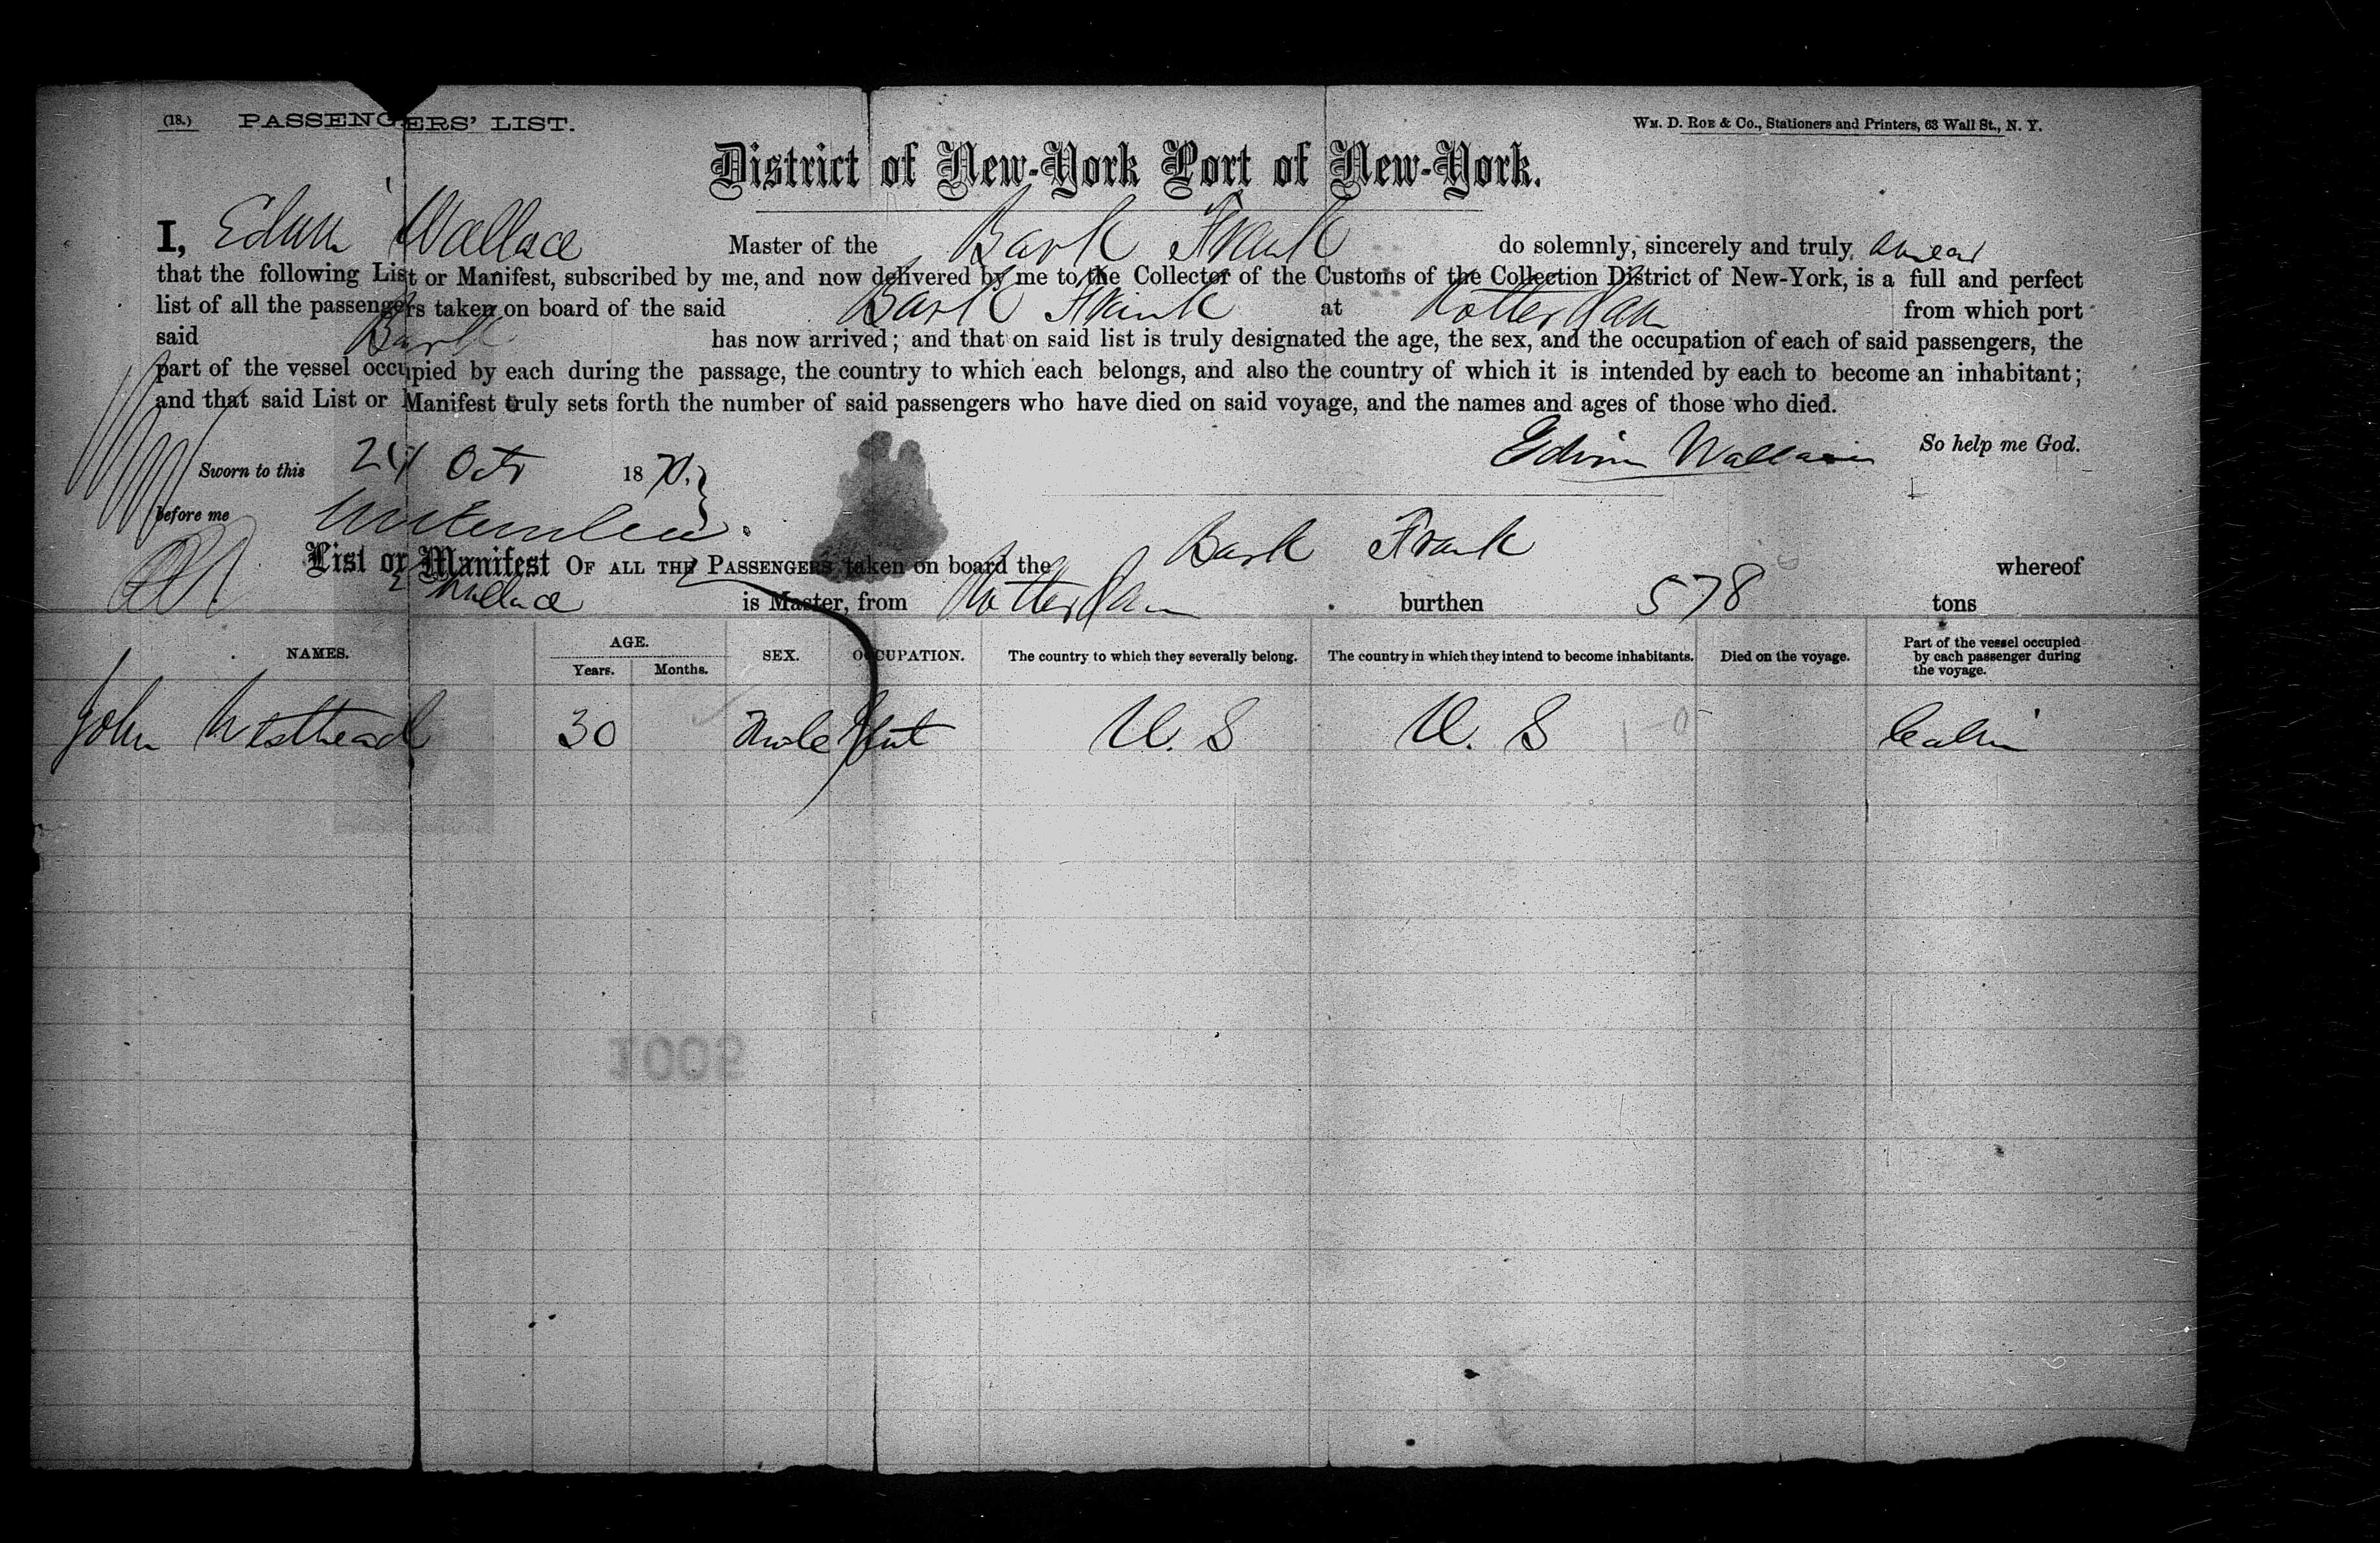 (18.) PASSENGERS' LIST. WM. D. ROE & CO., Stationers and Printers, 63 Wall St., N. Y.
District of New-York Port of New-York.
I, Edwin Wallace Master of the Bark Frank do solemnly, sincerely and truly swear
that the following List or Manifest, subscribed by me, and now delivered by me to the Collector of the Customs of the Collection District of New-York, is a full and perfect
list of all the passengers taken on board of the said Bark Frank at Rotterdam from which port
said Bark has now arrived; and that on said list is truly designated the age, the sex, and the occupation of each of said passengers, the
part of the vessel occupied by each during the passage, the country to which each belongs, and also the country of which it is intended by each to become an inhabitant;
and that said List or Manifest truly sets forth the number of said passengers who have died on said voyage, and the names and ages of those who died.
Edwin Wallace So help me God.
Sworn to this 24 Oct 1870.
before me
List or Manifest OF ALL THE PASSENGERS taken on board the Bark Frank whereof
E Wallace is Master, from Rotterdam burthen 578 tons
NAMES. AGE. Years. Months. SEX. OCCUPATION. The country to which they severally belong. The country in which they intend to become inhabitants. Died on the voyage. Part of the vessel occupied by each passenger during the voyage.
John Westhead 30 Male U. S U. S Cabin
1005